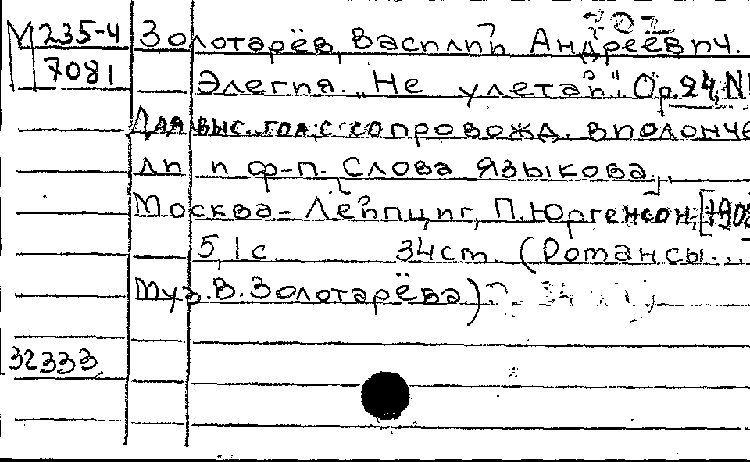 М 235-4
7081
Золотарёв, Василий Андреевич.
Элегия. „Не улетай". Ор. 24, N
Для выс. гол. с сопровожд. виолонче
ли и ф-п. Слова Языкова.
Москва - Лейпциг, П. Юргенсон, [190
5, 1 с 34 см. (Романсы...
Муз. В. Золотарёва)
32333